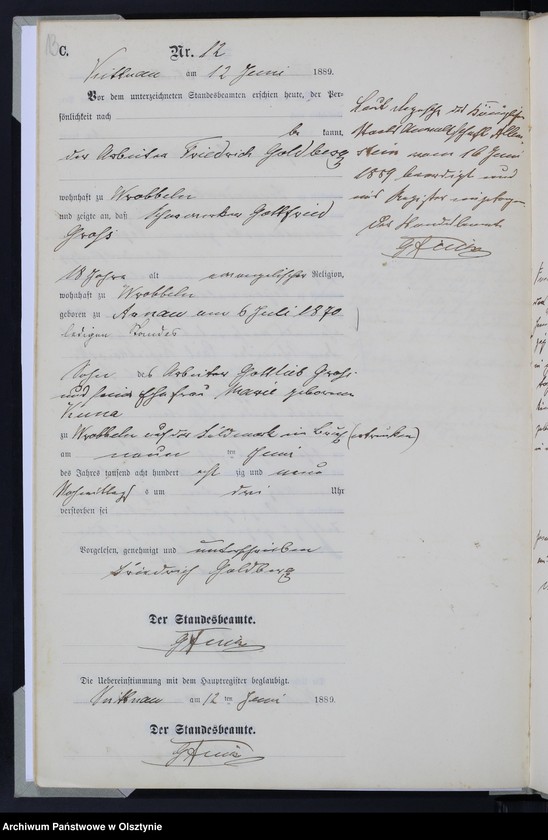 C.
Nr. 12
am 12 Juni 1889.
Vor dem unterzeichneten Standesbeamten erschien heute, der Per-
sönlichkeit nach
be kannt,
der Arbeiter Friedrich Goldberg
wohnhaft zu Wrobbeln
und zeigte an, daß Gottfried
Groß
18 Jahre alt evangelischer Religion,
wohnhaft zu Wrobbeln
geboren zu Arnau am 6 Juli 1870
ledigen Standes
Sohn des Arbeiter Gottlieb Groß
und seiner Ehefrau Marie geborenen
zu Wrobbeln auf der Feldmark im Bruch (ertrunken)
am neun ten Juni
des Jahres tausend acht hundert acht zig und neun
Nachmittags um drei Uhr
verstorben sei
Vorgelesen, genehmigt und unterschrieben
Friedrich Goldberg
Der Standesbeamte.
Die Uebereinstimmung mit dem Hauptregister beglaubigt.
am 12 ten Juni 1889.
Der Standesbeamte.
Laut Depesche der Königlichen
Staats Anwaltschaft Allen-
stein vom 16 Juni
1889 beerdigt und
ins Register eingetragen
Der Standesbeamte
Archiwum Państwowe w Olsztynie